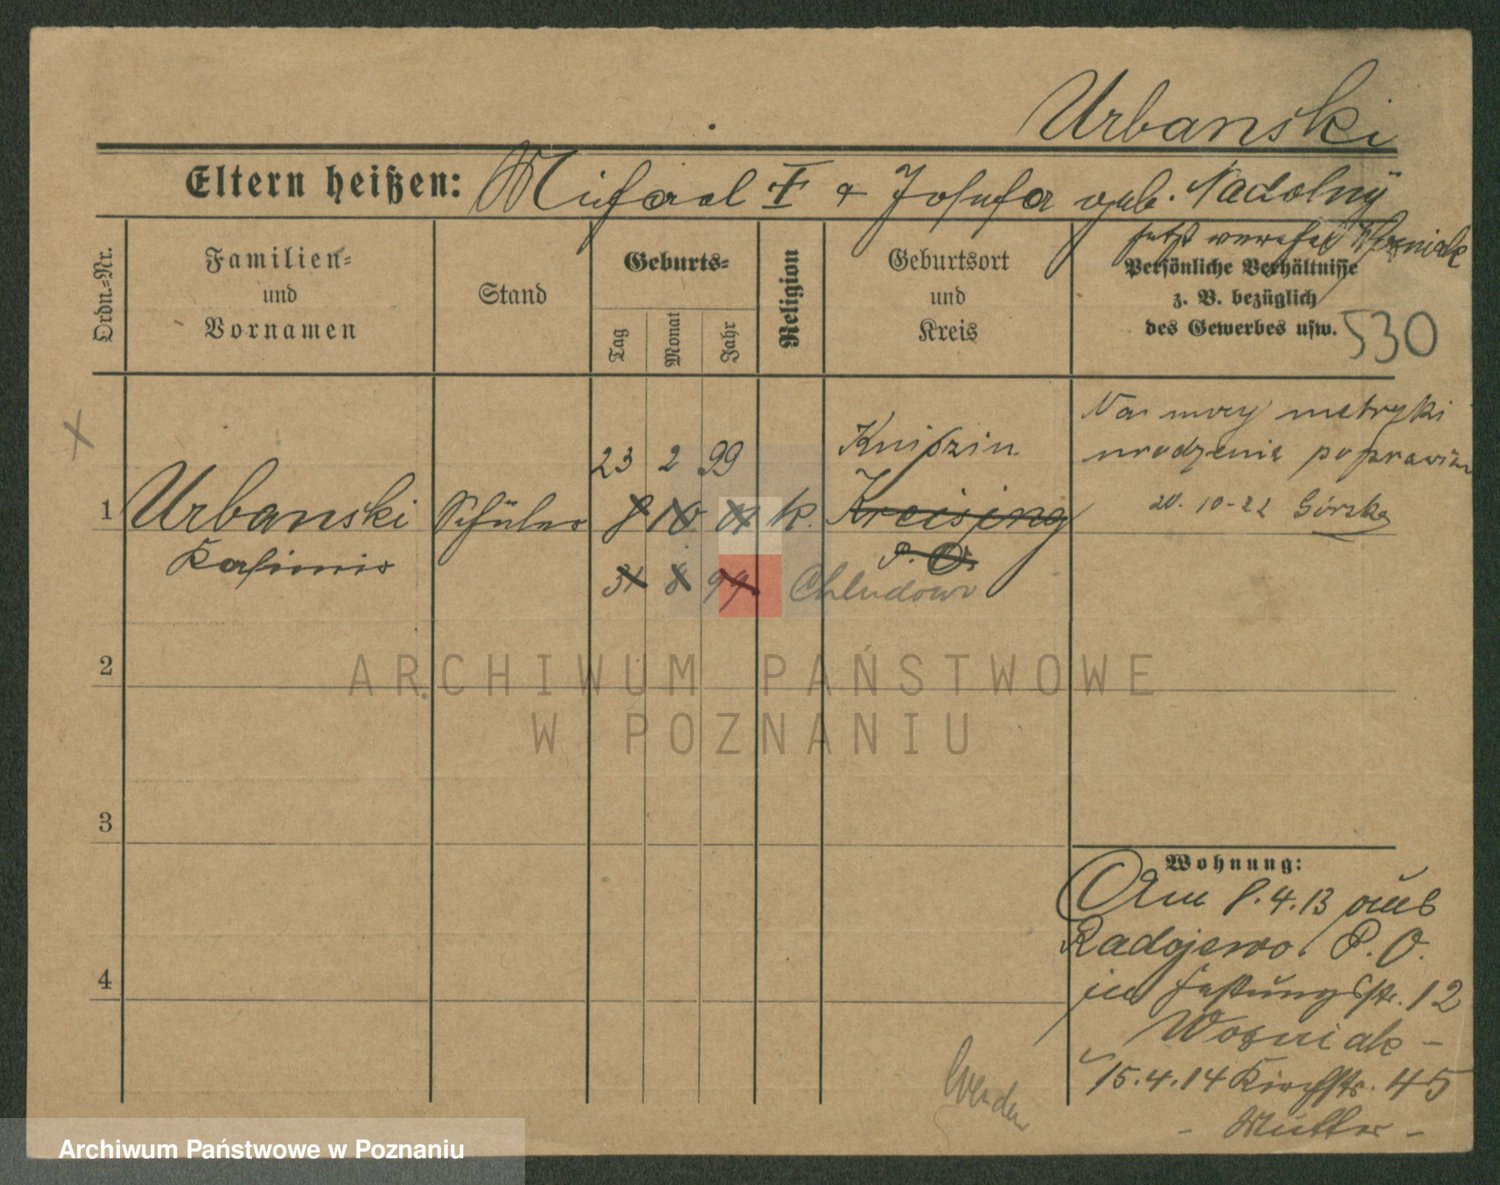 Urbanski
Eltern heißen: Michael † & Josefa geb. Nadolny
jetzt verehel. Wozniak
Ordn.-Nr.
Familien-
und
Vornamen
Stand
Geburts-
Tag
Monat
Jahr
Religion
Geburtsort
und
Kreis
Persönliche Verhältnisse
z. B. bezüglich
des Gewerbes usw.
530
Na mocy metryki
urodzenia poprawiono
20. 10-22 Górzka
23 2 99
Kniszin
1 Urbanski Schüler 8 10 k. Kreising
Kasimir
P. O.
31 8 99 Chludowo
2
3
4
Wohnung:
Am 8.4.13 aus
Radojewo P. O.
in Festungsstr. 12
Wozniak -
15.4.14 Kirchstr. 45
- Mutter -
Wenden
ARCHIWUM PAŃSTWOWE
W POZNANIU
Archiwum Państwowe w Poznaniu